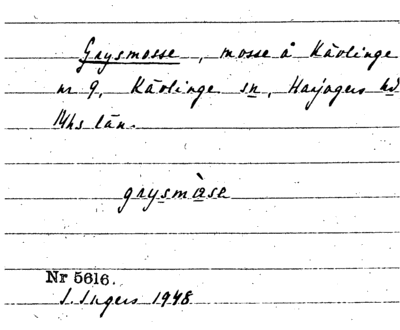 Grysmosse, mosse å Kävlinge
nr 9, Kävlinge sn, Harjagers hd
Mhs län.
grysmåsa
Nr 5616.
I. Ingers 1948